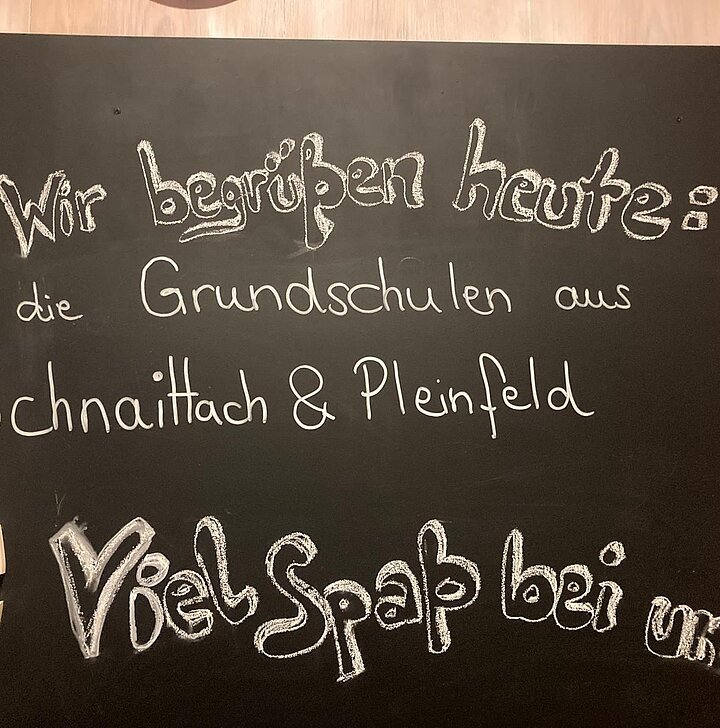 Wir begrüßen heute:
die Grundschulen aus
chnaittach & Pleinfeld
Viel Spaß bei un